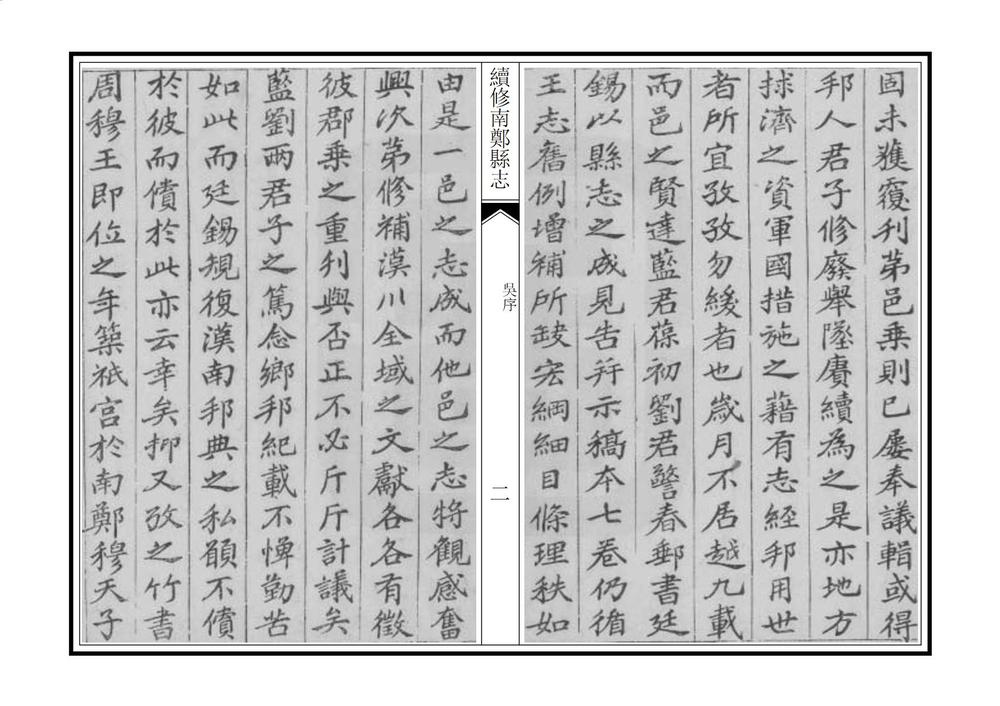 固未獲寢刋苐邑乗則已屡奉議輯或得
邦人君子修廢舉墜賡續為之是亦地方
捄濟之資軍國措施之藉有志經邦用世
者所宜孜孜勿緩者也嵗月不居越九載
而邑之賢達藍君葆初劉君警春郵書廷
錫以縣志之成見告并示稿本七卷仍循
王志舊例增補所缺宏綱細目條理秩如
續修南鄭縣志
吳序
二
由是一邑之志成而他邑之志将觀感奮
興次苐修補漢川全域之文獻各各有徵
彼郡乗之重刋與否正不必斤斤計議矣
藍劉兩君子之篤念鄉邦紀載不憚勤苦
如此而廷錫規復漢南邦典之私願不償
於彼而償於此亦云幸矣抑又攷之竹書
周穆王即位之年築祇宫於南鄭穆天子